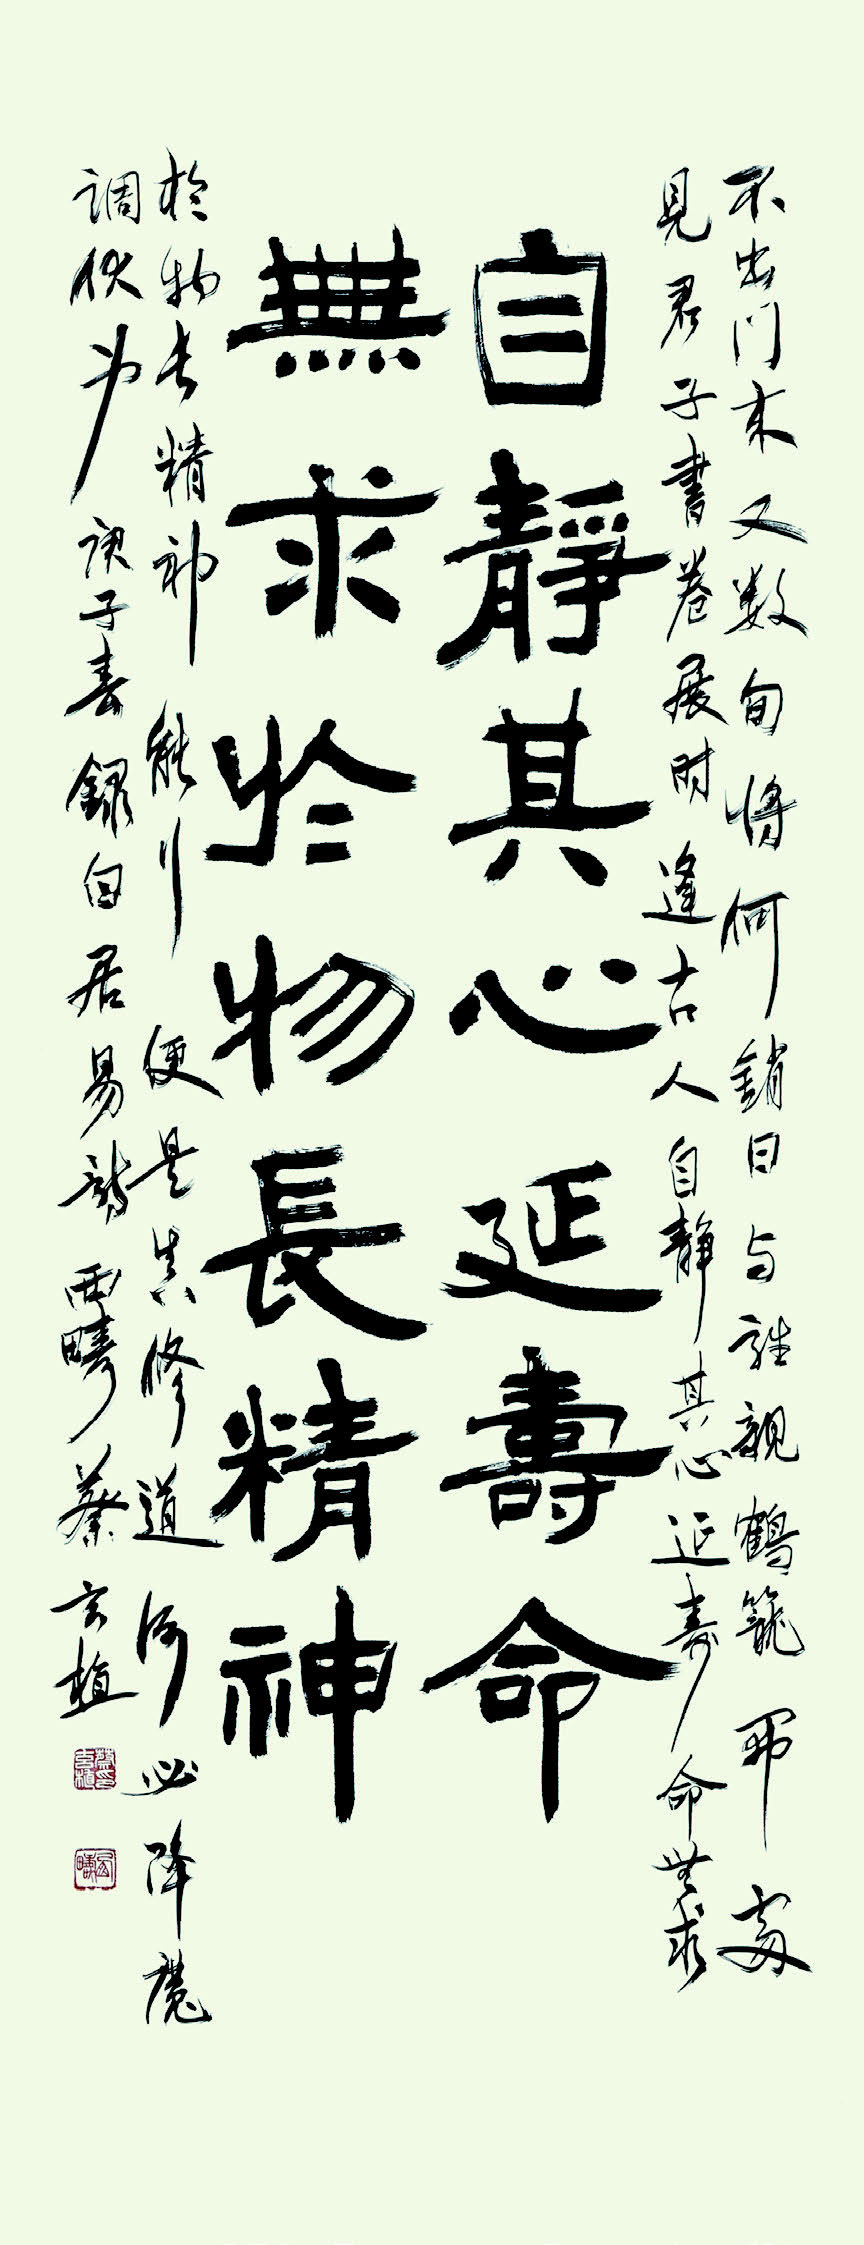 不出门来又数旬将何銷日与誰親鶴籠開處
見君子書卷展时逢古人自静其心延寿命無求
自靜其心延壽命
無求於物長精神
於物长精神能行便是真修道何必降魔
调伏身庚子春錄白居易詩西疇蔡植